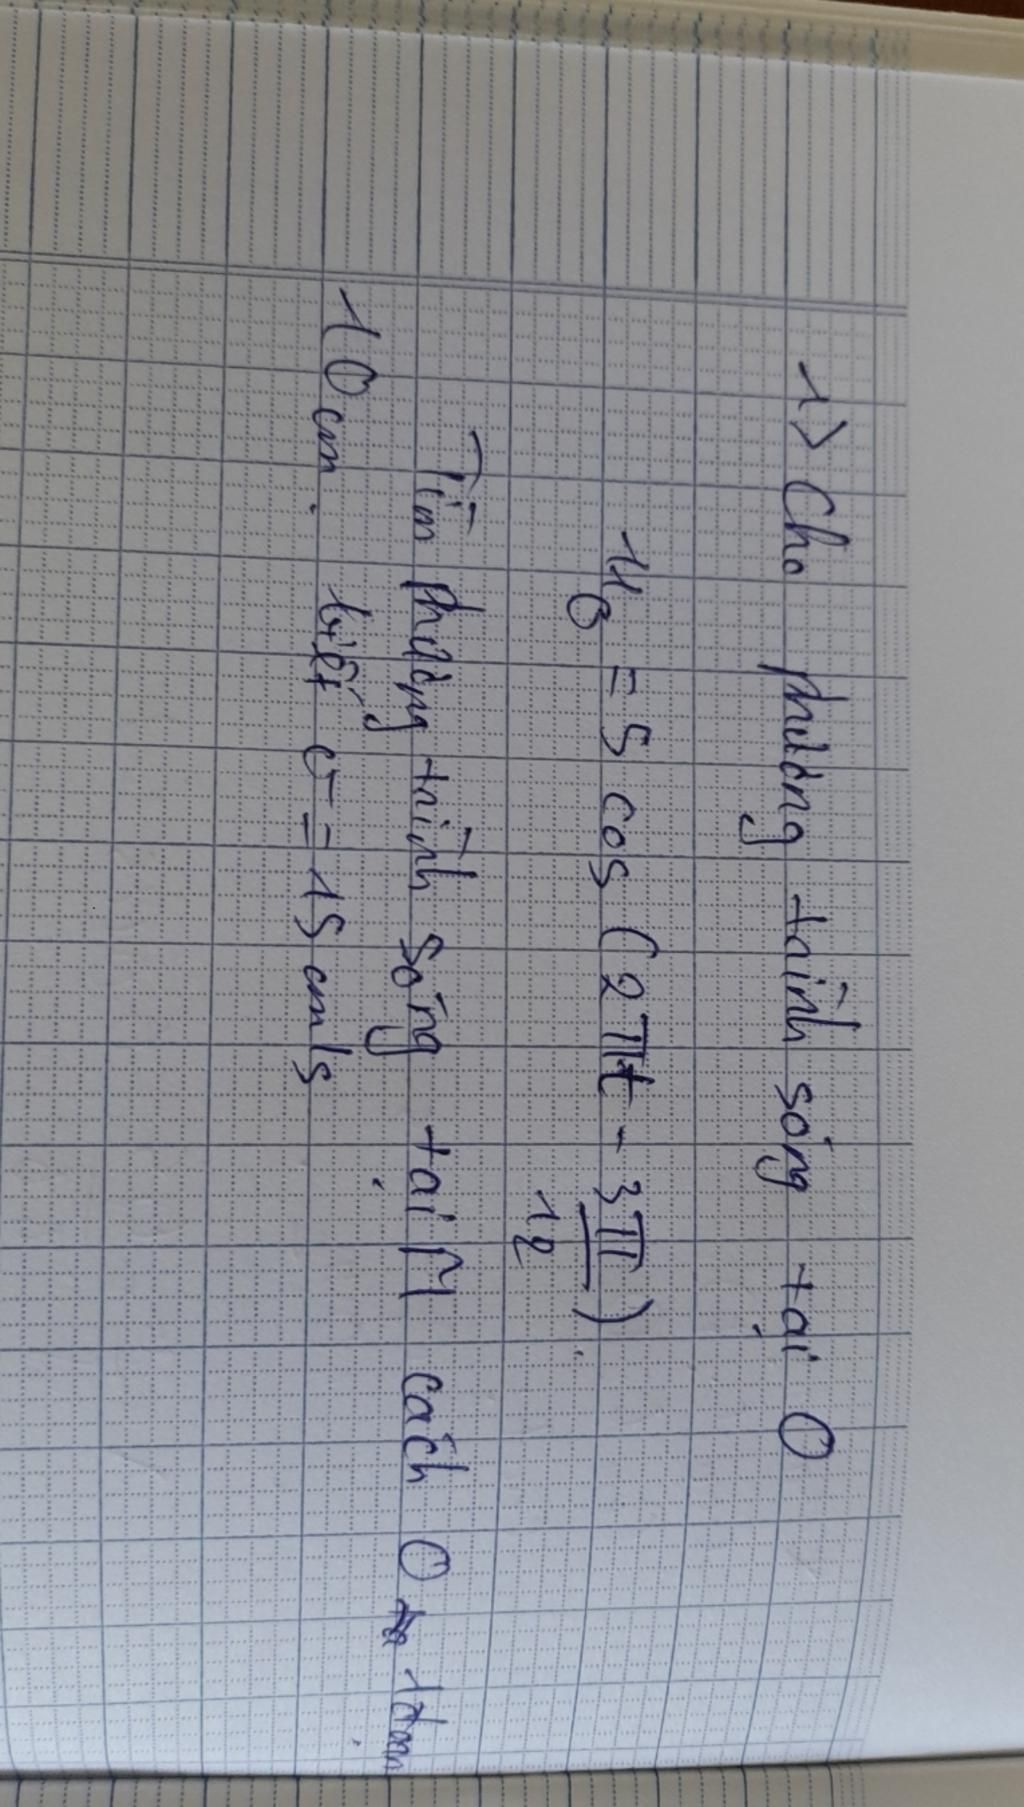 1> Cho phương trình sóng tại O
u₀ = 5 cos (2πt - 3π/12)
Tìm phương trình sóng tại M cách O
10 cm. biết v = 15 cm/s